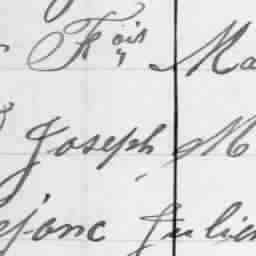 Fois Ma
Joseph M
ejonc Julien